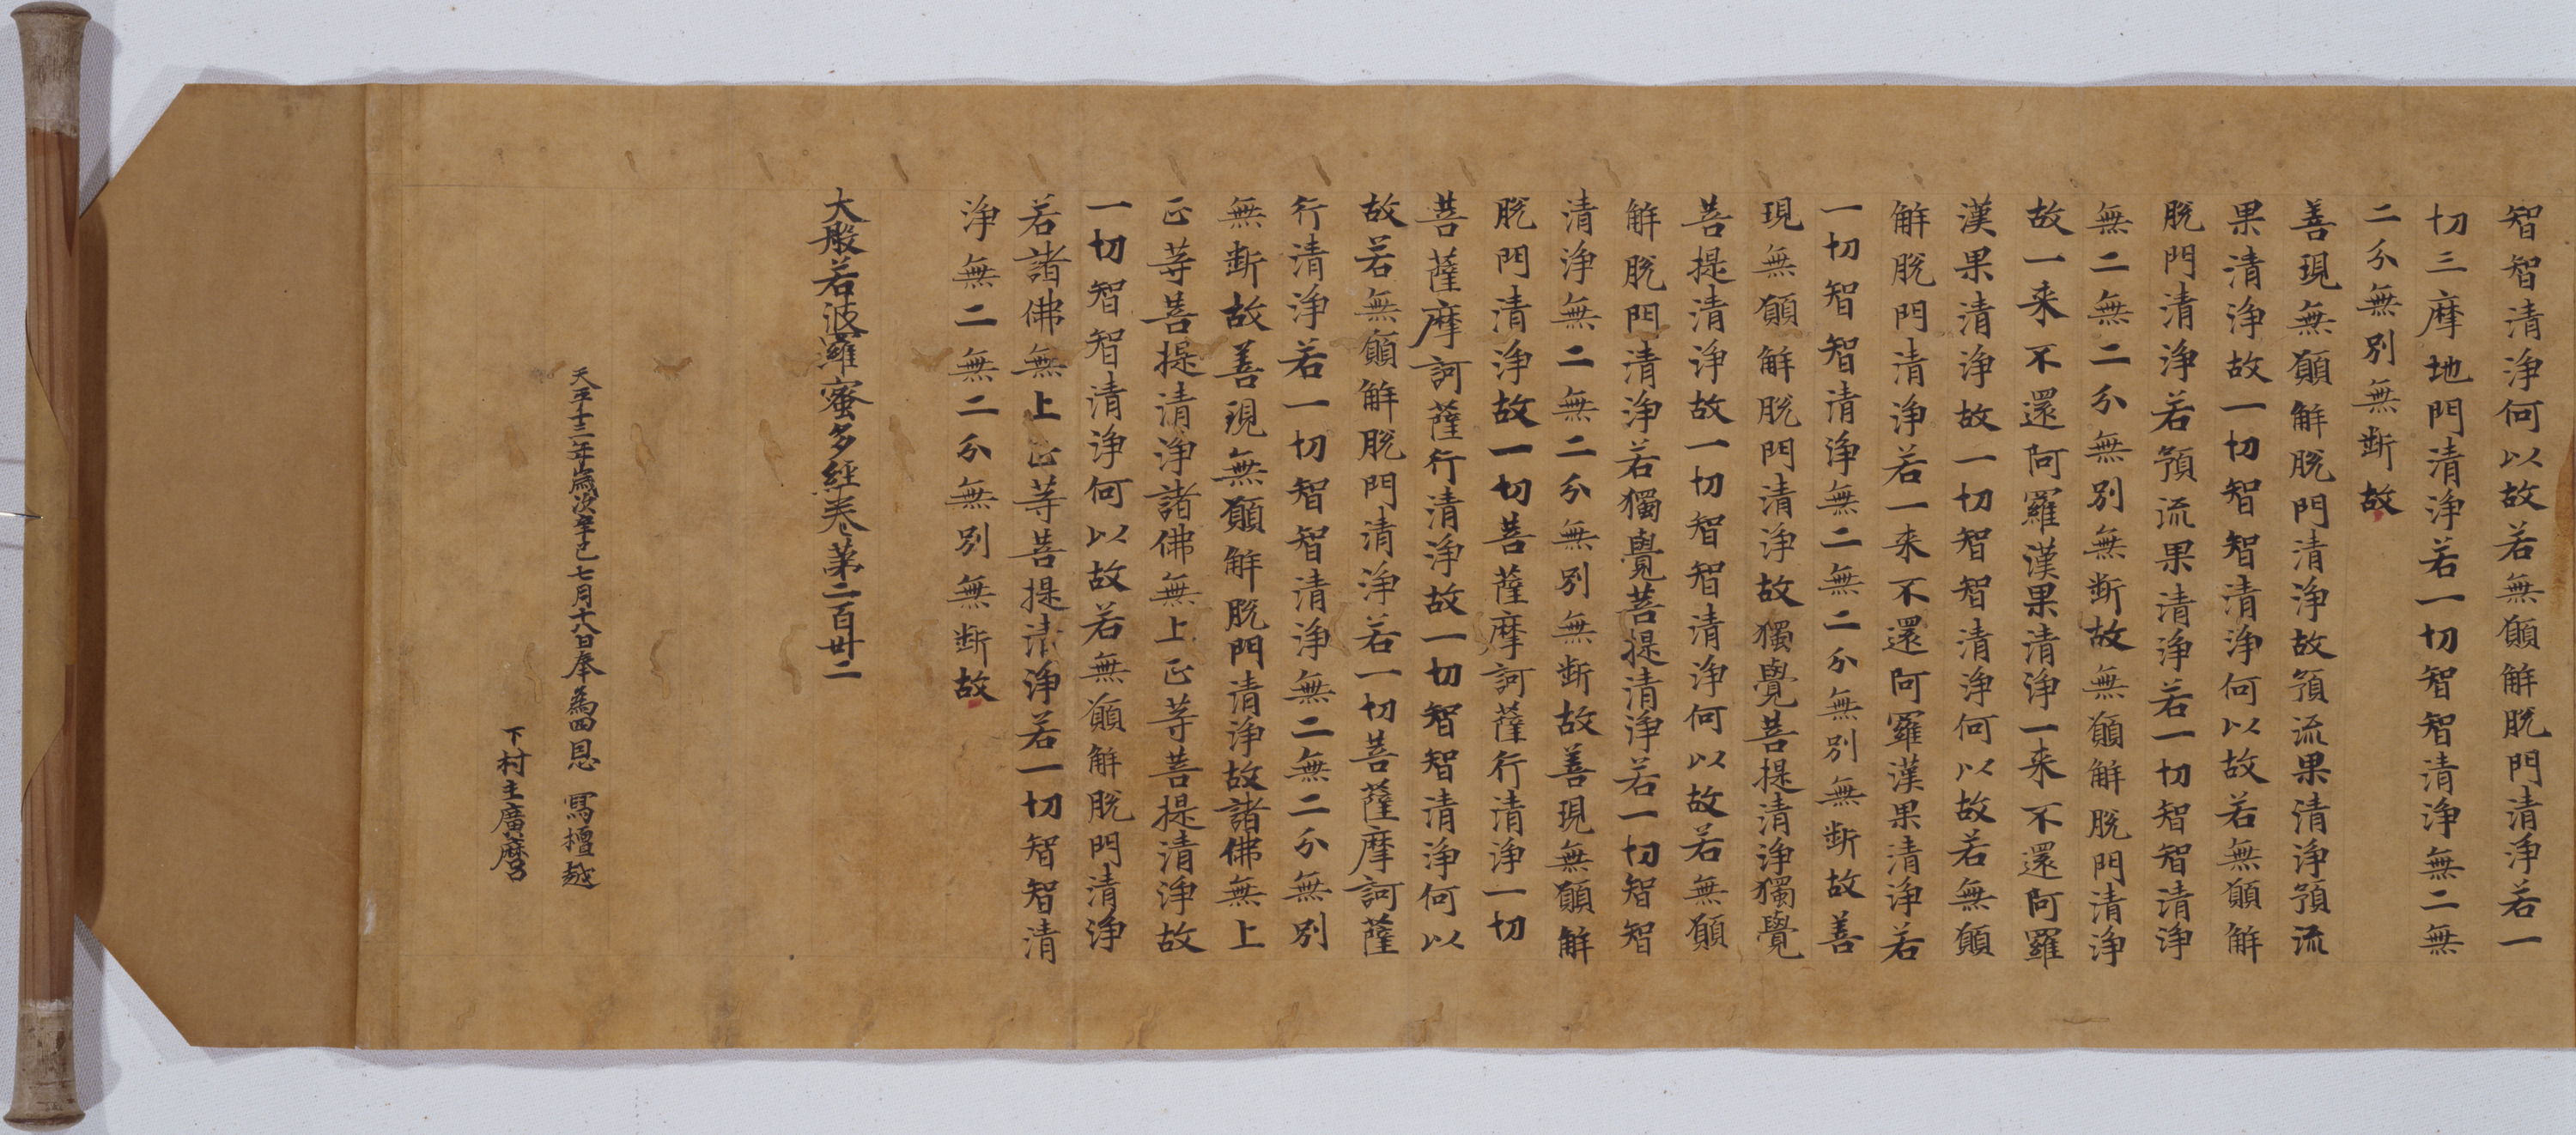 智智清淨何以故若無願解脫門清淨若一
切三摩地門清淨若一切智智清淨無二無
二分無別無斷故
善現無願解脫門清淨故預流果清淨預流
果清淨故一切智智清淨何以故若無願解
脫門清淨若預流果清淨若一切智智清淨
無二無二分無別無斷故無願解脫門清淨
故一来不還阿羅漢果清淨一来不還阿羅
漢果清淨故一切智智清淨何以故若無願
解脫門清淨若一来不還阿羅漢果清淨若
一切智智清淨無二無二分無別無斷故善
現無願解脫門清淨故獨覺菩提清淨獨覺
菩提清淨故一切智智清淨何以故若無願
解脫門清淨若獨覺菩提清淨若一切智智
清淨無二無二分無別無斷故善現無願解
脫門清淨故一切菩薩摩訶薩行清淨一切
菩薩摩訶薩行清淨故一切智智清淨何以
故若無願解脫門清淨若一切菩薩摩訶薩
行清淨若一切智智清淨無二無二分無別
無斷故善現無願解脫門清淨故諸佛無上
正等菩提清淨諸佛無上正等菩提清淨故
一切智智清淨何以故若無願解脫門清淨
若諸佛無上正等菩提清淨若一切智智清
淨無二無二分無別無斷故
大般若波羅蜜多經卷第二百卅二
天平十三年歲次辛巳七月十八日奉為四恩 寫檀越
下村主廣麿